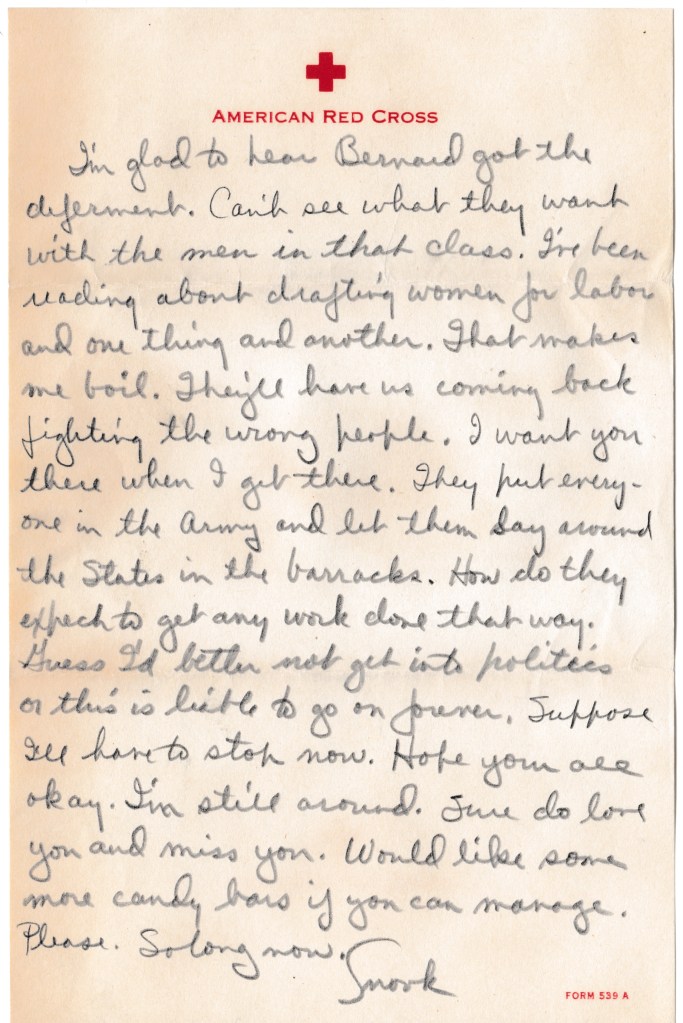 AMERICAN RED CROSS
I'm glad to hear Bernard got the
deferment. Can't see what they want
with the men in that class. I've been
reading about drafting women for labor
and one thing and another. That makes
me boil. They'll have us coming back
fighting the wrong people. I want you
there when I get there. They put every-
one in the Army and let them lay around
the States in the barracks. How do they
expect to get any work done that way.
Guess I'd better not get into politics
or this is liable to go on forever. Suppose
I'll have to stop now. Hope your all
okay. I'm still around. Sure do love
you and miss you. Would like some
more candy bars if you can manage.
Please. So long now.
Snook
FORM 539 A